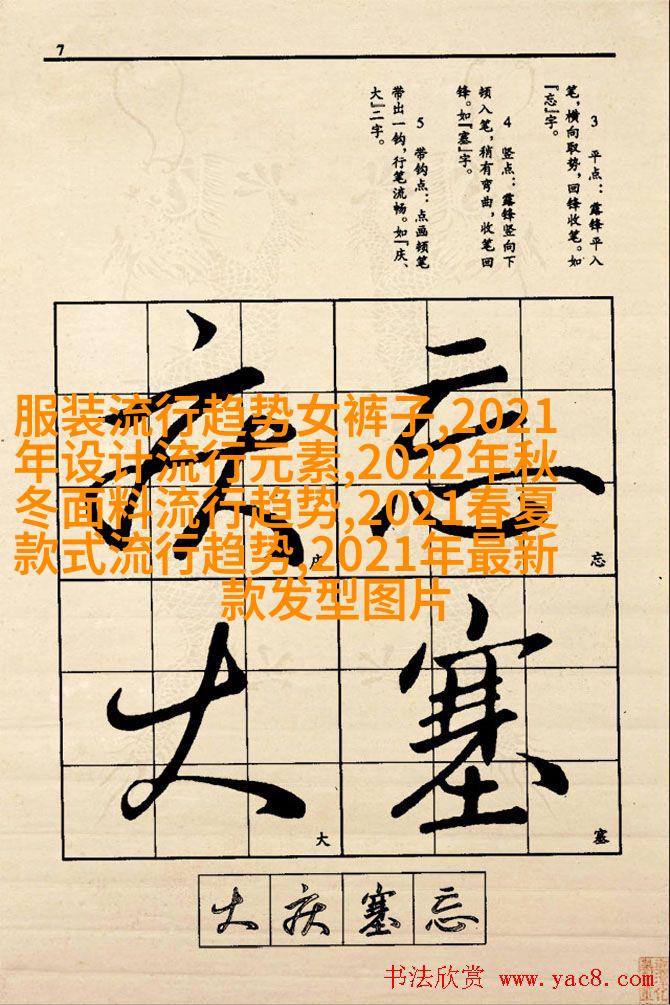 7
3 平点：露锋平入
笔，横向取势，回锋收笔。如
『忘』字。
4 竖点：露锋竖向下
顿入笔，稍有弯曲，收笔回
锋。如『塞』字。
5 带钩点：点画顿笔
带出一钩，行笔流畅。如『庆、
大』二字。
服装流行趋势女裤子,2021
年设计流行元素,2022年秋
冬面料流行趋势,2021春夏
款式流行趋势,2021年最新
款发型图片
忘
忘
塞
塞
庆
庆
大
大
大庆塞忘
书法欣赏 www.yac8.com